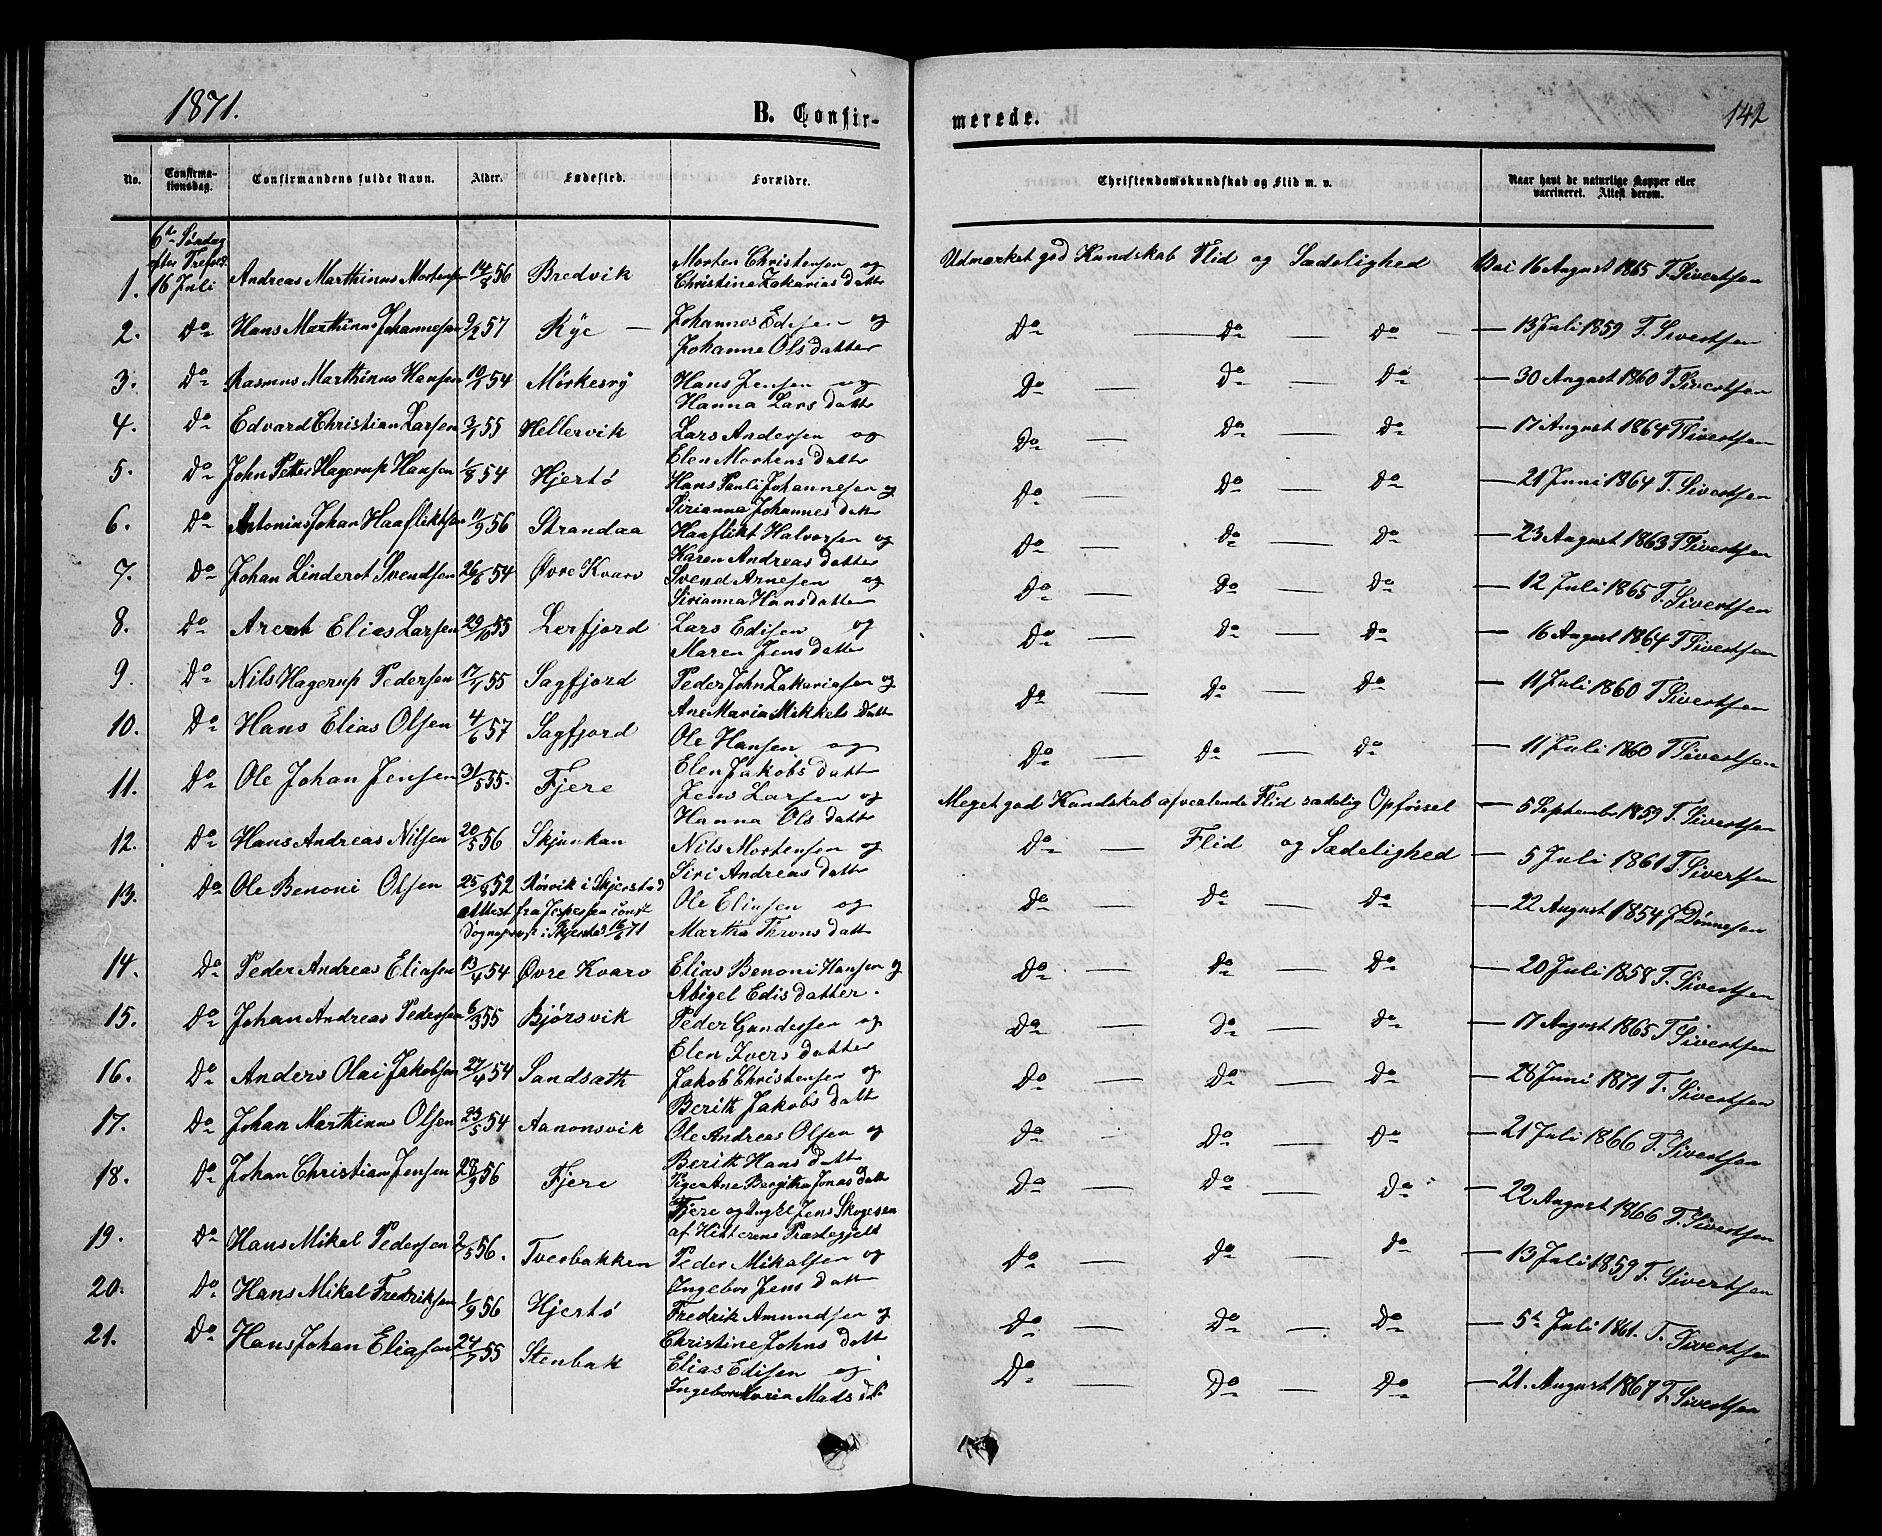 1871.
B. Confir-
merede.
142
No.
Confirma-
tionsdag.
Confirmandens fulde Navn.
Alder.
Fødested.
Forældre.
Christendomskundskab og Flid m. v.
Naar havt de naturlige Kopper eller
vaccineret. Attest derom.
6te Søndag
efter Trefold.
1. 16 Juli Andreas Marthinus Mortensen 56 Bredvik Morten Christensen og
Christine Zakarias datter
Udmærket god Kundskab Flid og Sædelighed Vac 16 August 1865 T. Sivertsen
2. Do Hans Marthinus Johannesen 57 Kye — Johannes Edisen og
Johanne Olsdatter
Do — Do — Do — 13 Juli 1859 T. Sivertsen
3. Do Rasmus Marthinus Hansen 54 Mørkesvig Hans Jensen og
Hanna Lars datter
Do — Do — Do — 30 August 1860 T Sivertsen
4. Do Edvard Christian Larsen 55 Hellervik Lars Andersen og
Elen Mortens datter
Do — Do — Do — 17 August 1864 T Sivertsen
5. Do John Petter Hagerup Hansen 1/8 54 Hjertø Hans Pauli Johannesen og
Sirianna Johannes datt
Do — Do — Do — 21 Juni 1864 T. Sivertsen
6. Do Antonius Johan Haafliktsen 11/9 56 Strandaa Haaflikt Halvorsen og
Karen Andreas datter
Do — Do — Do — 23 August 1863 T Sivertsen
7. Do Johan Linderot Svendsen 26/6 54 Øvre Kvarv Svend Arnesen og
Sirianna Hansdatter
Do — Do — Do — 12 Juli 1865 T. Sivertsen
8. Do Arent Elias Larsen 29/10 55 Lerfjord Lars Edisen og
Maren Jens datter
Do — Do — Do — 16 August 1864 T Sivertsen
9. Do Nils Hagerup Pedersen 17/1 55 Sagfjord Peder John Zakariasen og
Ane Maria Mikkels datt
Do — Do — Do — 11 Juli 1860 T. Sivertsen
10. Do Hans Elias Olsen 4/6 57 Sagfjord Ole Hansen og
Elen Jakobs datter
Do — Do — Do — 11 Juli 1860 T Sivertsen
11. Do Ole Johan Jensen 31/5 55. Fjere Jens Larsen og
Hanna Ols datter
Meget god Kundskab afvexlende Flid sædelig Opførsel — 5 September 1859 T. Sivertsen
12. Do Hans Andreas Nilsen 20/5 56 Skjunkan Nils Mortensen og
Siri Andreas datt
Do — Flid og Sædelighed — 5 Juli 1861 T. Sivertsen
13. Do Ole Benoni Olsen 25/8 52 Rørvik i Skjerstad Ole Eliasen og
Attest fra Jespersen const
Sognepræst i Skjerstad 71 Martha Throns datt
Do — Do — Do — 22 August 1854 J Dønnesen
14. Do Peder Andreas Eliasen 13/4 54 Øvre Kvarv Elias Benoni Hansen og
Abigel Edisdatter.
Do — Do — Do — 20 Juli 1858 T. Sivertsen
15. Do Johan Andreas Pedersen 6/3 55 Bjørsvik Peder Gundersen og
Elen Ivers datter
Do — Do — Do — 17 August 1865 T. Sivertsen
16. Do Anders Olai Jakobsen 27/4 54 Sandsath Jakob Christensen og
Berith Jakobs datt
Do — Do — Do — 28 Juni 1871 T. Sivertsen
17. Do Johan Marthinus Olsen 23/5 54 Aanonsvik Ole Andreas Olsen og
Berith Hans datt
Do — Do — Do — 21 Juli 1866 T. Sivertsen
18. Do Johan Christian Jensen 28/9 56 Fjere Pige Ane Bergitha Jonas datt
Fjere og Ungkl Jens Skogesen
af Hitterens Præstegjeld
Do — Do — Do — 22 August 1866 T. Sivertsen
19. Do Hans Mikal Pedersen 2/5 56. Tverbakken Peder Mikalsen og
Ingebor Jens datt
Do — Do — Do — 13 Juli 1859 T. Sivertsen
20. Do Hans Mikal Fredriksen 1/9 56 Hjertø Fredrik Amundsen og
Christine Johns datt
Do — Do — Do — 5te Juli 1861. T. Sivertsen
21. Do Hans Johan Eliasen 24/7 55 Stenbak Elias Edisen og
Ingebor Maria Mads dt
Do — Do — Do — 21. August 1867 T. Sivertsen